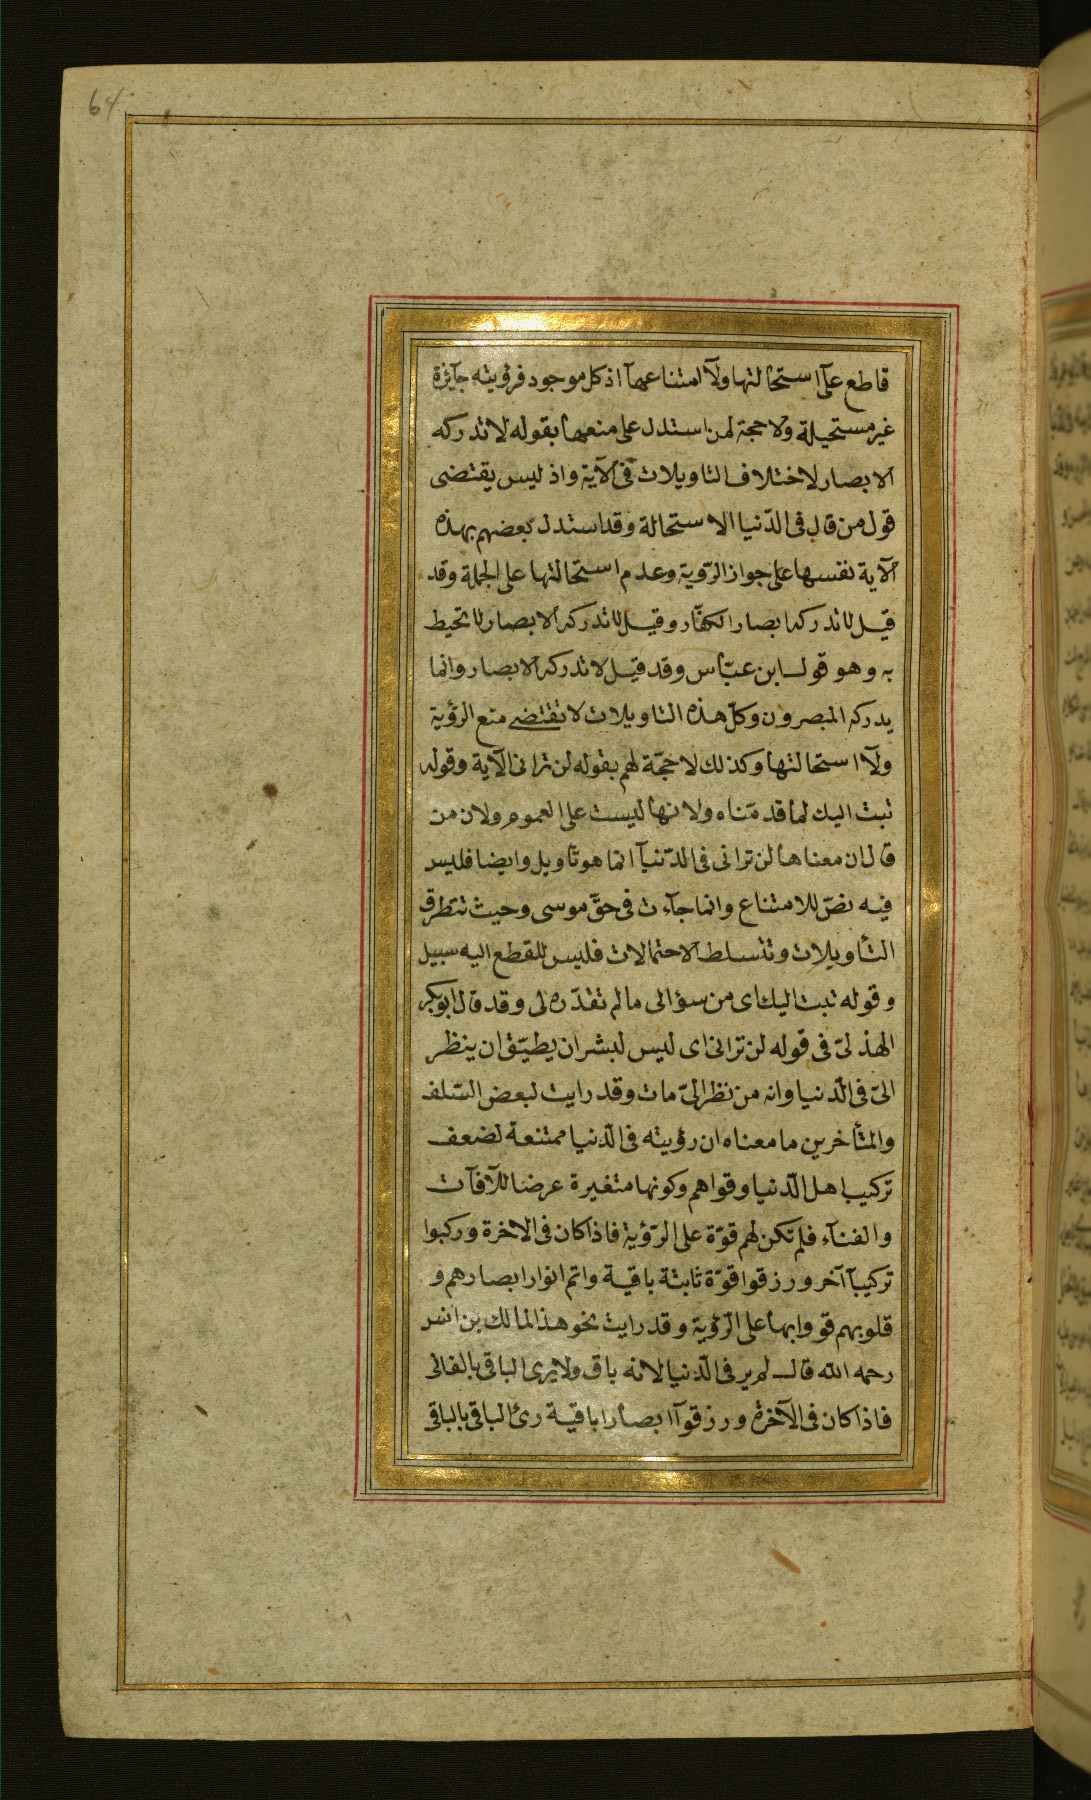 64
قاطع علآ استحالتها ولآ امتناعهآ اذ كل موجود فرؤيته جآيزة
غير مستحيلة ولا حجة لمن استدل على منعها بقوله لا تدركه
الابصار لاختلاف التاويلات فى الآية واذ ليس يقتضى
قول من قال فى الدّنيا الاستحالة وقد استدل بعضهم بهذه
الآية نفسها على جواز الرّوية وعدم استحالتها على الجملة وقد
قيل لا تدركه ابصار الكفّار وقيل لا تدركه الابصار لا تحيط
به وهو قول ابن عبّاس وقد قيل لا تدركه الابصار وانما
يدركه المبصرون وكلّ هذه التاويلات لا تقتضى منع الرؤية
ولآ استحالتها وكذلك لا حجّة لهم بقوله لن ترانى الآية وقوله
تبت اليك لما قدمّناه ولانها ليست على العموم ولان من
قال ان معناها لن ترانى فى الدّنيآ انما هو تاويل وايضا فليس
فيه نصّ للامتناع وانما جآءت فى حقّ موسى وحيث تتطرق
التأويلات وتتسلط الاحتمالات فليس للقطع اليه سبيل
وقوله تبت اليك اى من سؤالى ما لم تقدّره لى وقد قال ابو بكر
الهذلىّ فى قوله لن ترانى اى ليس لبشر ان يطيق ان ينظر
الىّ فى الدّنيا وانه من نظر الىّ مات وقد رايت لبعض السّلف
والمتأخرين ما معناه ان رؤيته فى الدّنيا ممتنعة لضعف
تركيب اهل الدّنيا وقواهم وكونها متغيرة عرضا للآفآت
والفنآء فلم تكن لهم قوّة على الرّؤية فاذا كان فى الاخرة وركبوا
تركيبآ آخر ورزقوا قوّة ثابتة باقية واتم انوار ابصارهم و
قلوبهم قووا بها على الرّؤية وقد رايت نحو هذا لمالك بن انس
رحمه الله قال لم ير فى الدّنيا لانه باق ولا يرى الباقى بالفانى
فاذا كان فى الآخرة ورزقوآ ابصارا باقية رئ الباقى بالباقى